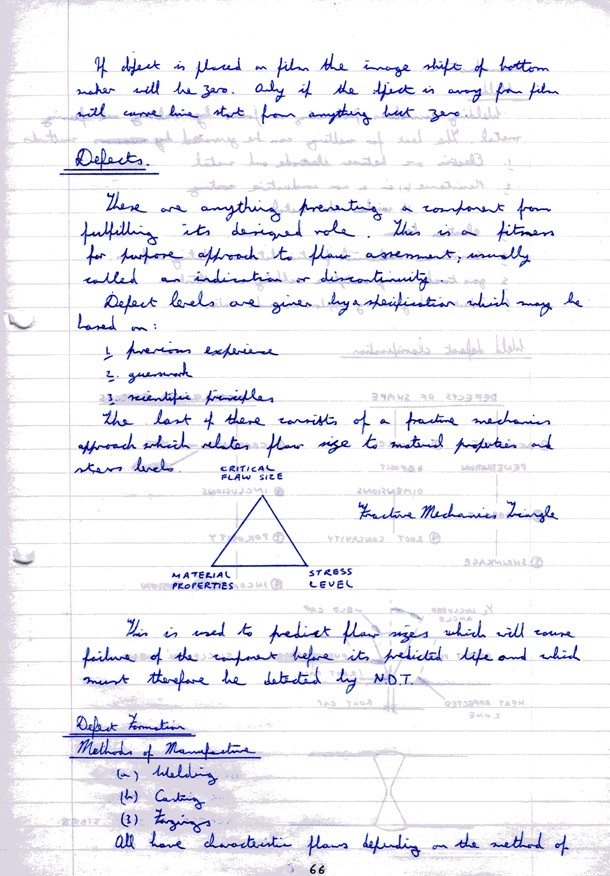 If defect is placed on film the image shift of bottom
maker will be zero. Only if the defect is away from film
will curve line start from anything but zero.
Defects.
These are anything preventing a component from
fulfilling its designed role. This is a fitness
for purpose approach to flaw assessment, usually
called an indication or discontinuity.
Defect levels are given by a specification which may be
based on:
1. previous experience
2. guesswork
3. scientific principles
The last of these consists of a fracture mechanics
approach which relates flaw size to material properties and
stress levels.
CRITICAL
FLAW SIZE
Fracture Mechanics Triangle
MATERIAL
PROPERTIES
STRESS
LEVEL
This is used to predict flaw sizes which will cause
failure of the component before its predicted life and which
must therefore be detected by N.D.T.
Defect Formation
Methods of Manufacture
(a) Welding
(b) Casting
(3) Forgings
All have characteristic flaws depending on the method of
66